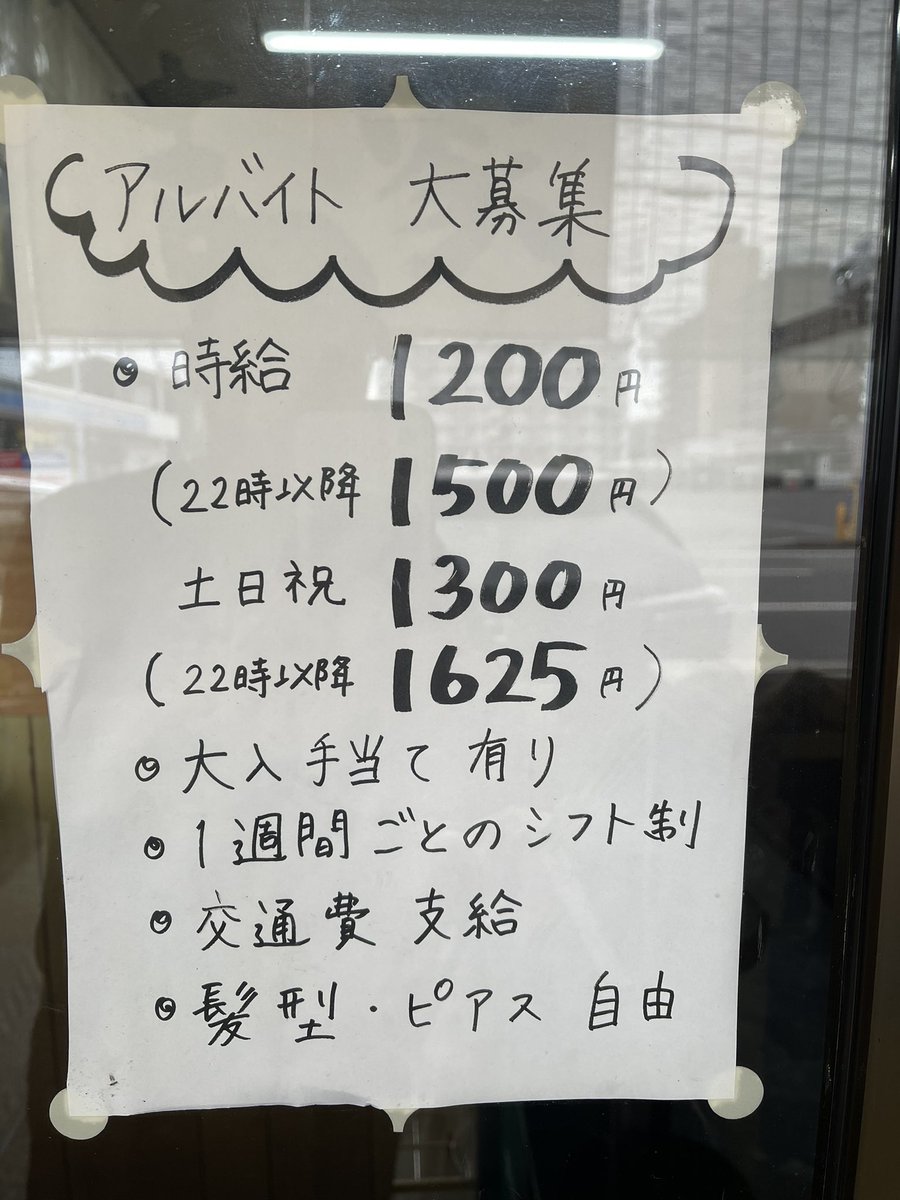 アルバイト 大募集
時給 1200円
(22時以降 1500円)
土日祝 1300円
(22時以降 1625円)
大入手当て有り
1週間ごとのシフト制
交通費 支給
髪型・ピアス 自由